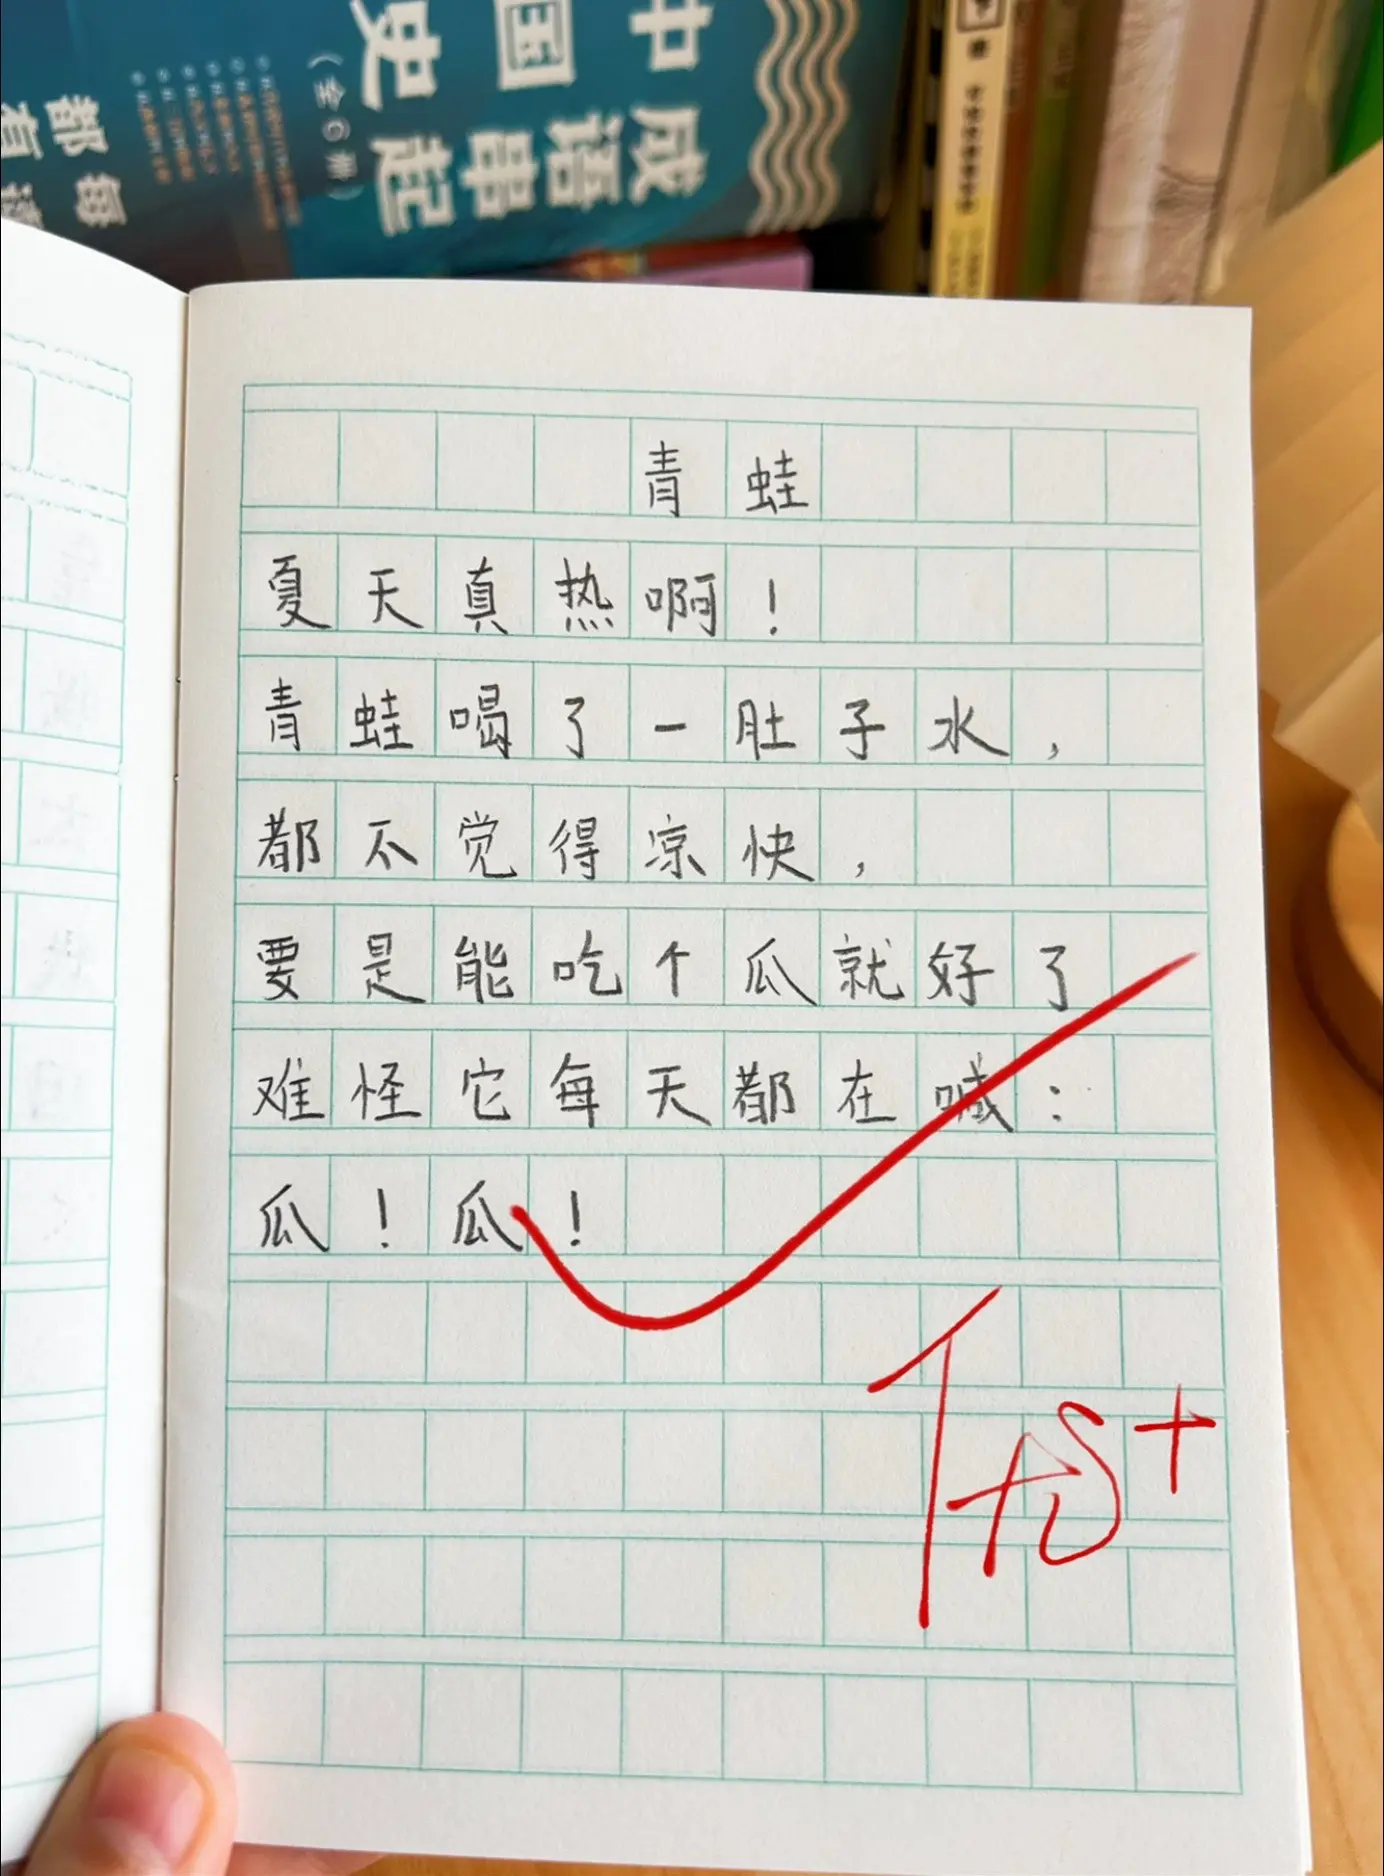 中国史
成语串起
(全6册)
都
每
有
青蛙
夏天真热啊！
青蛙喝了一肚子水，
都不觉得凉快，
要是能吃个瓜就好了
难怪它每天都在喊：
瓜！瓜！